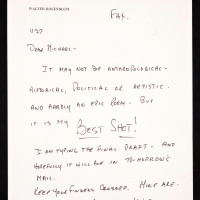 WALTER ROSENBLUM
FAX.
1/27
DEAR MICHAEL -
IT MAY NOT BE ANTHROPOLOGICAL -
HISTORICAL, POLITICAL OR ARTISTIC.
AND HARDLY AN EPIC POEM. BUT
IT IS MY BEST SHOT!
I AM TYPING THE FINAL DRAFT - AND
HOPEFULLY IT WILL BE IN TOMORROW'S
MAIL.
KEEP YOUR FINGERS CROSSED. MINE ARE.